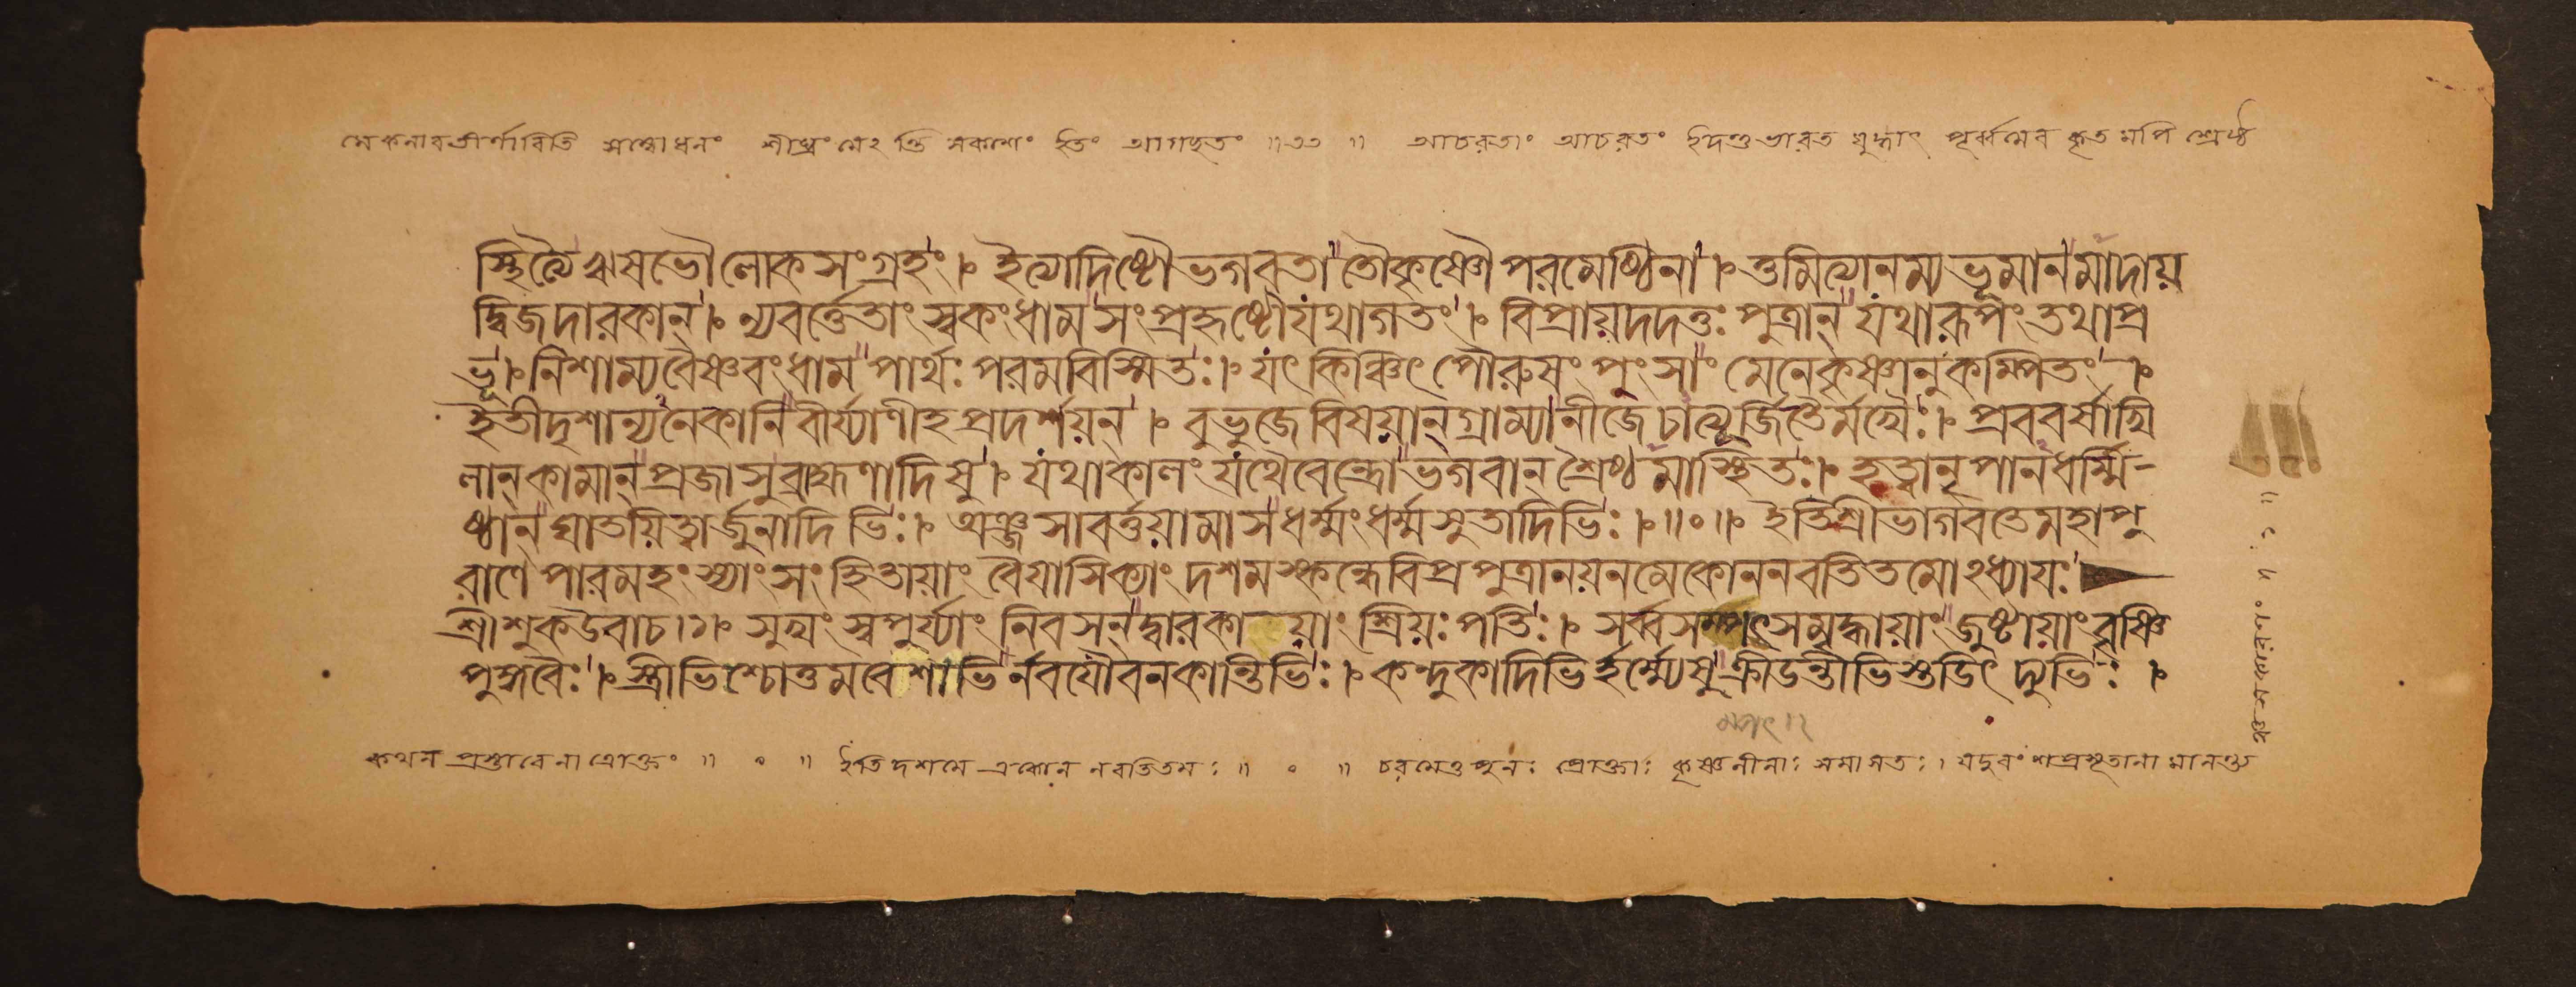 মেকলাবতীর্ণাবিতি সম্বোধনং শীঘ্রং মেঽন্তি সকাশং ইতং আগচ্ছতং ॥৩৩॥ আচরতাং আচরতং ইদন্তু ভারত যুদ্ধাৎ পূর্ব্বমেব কৃতমপি শ্রৈষ্ঠ
স্থিত্যৈ ঋষভৌ লোকসংগ্রহং। ইত্যাদিষ্টৌ ভগবতা তৌ কৃষ্ণৌ পরমেষ্ঠিনা। ওমিত্যানম্য ভূমানমাদায়
দ্বিজদারকান্। ন্যবর্ত্তেতাং স্বকং ধাম সংপ্রহৃষ্টৌ যথাগতং। বিপ্রায় দদতুঃ পুত্রান্ যথারূপং তথা প্র
ভূ। নিশাম্য বৈষ্ণবং ধাম পার্থঃ পরমবিস্মিতঃ। যৎকিঞ্চিৎ পৌরুষং পুংসাং মেনে কৃষ্ণানুকম্পিতং।
ইতীদৃশান্যনেকানি বীর্য্যাণীহ প্রদর্শয়ন্। বুভুজে বিষয়ান্ গ্রাম্যানীজে চাত্যূর্জিতৈর্মখৈঃ। প্রববর্ষাখি
লান্ কামান্ প্রজাসু ব্রাহ্মণাদিষু। যথাকালং যথৈবেন্দ্রো ভগবান্ শ্রৈষ্ঠ্যমাস্থিতঃ। হত্বা নৃপানধর্ম্মি-
ষ্ঠান্ ঘাতয়িত্বার্জুনাদিভিঃ। অঞ্জসা বর্ত্তয়ামাস ধর্ম্মং ধর্ম্মসুতাদিভিঃ।॥০॥। ইতি শ্রীভাগবতে মহাপু
রাণে পারমহংস্যাং সংহিতায়াং বৈয়াসিক্যাং দশমস্কন্ধে বিপ্রপুত্রানয়নমেকোননবতিতমোঽধ্যায়ঃ
শ্রীশুকউবাচ। সুখং স্বপুর্য্যাং নিবসন্ দ্বারকায়াং শ্রিয়ঃ পতিঃ। সর্ব্বসম্পৎসমৃদ্ধায়াং জুষ্টায়াং বৃষ্ণি
পুঙ্গবৈঃ। স্ত্রীভিশ্চোত্তমবেশাভির্নবযৌবনকান্তিভিঃ। কন্দুকাদিভির্হর্ম্ম্যেষু ক্রীড়ন্তীভিস্তড়িৎ দ্যুভিঃ।
ম্পৎ।২
কথন প্রস্তাবেনাত্রোক্তং ॥ ০ ॥ ইতি দশমে একোন নবতিতমঃ ॥ ০ ॥ চরমেতু পুনঃ প্রোক্তাঃ কৃষ্ণলীলাঃ সমাসতঃ। যদুবংশপ্রসূতানামানন্ত্য